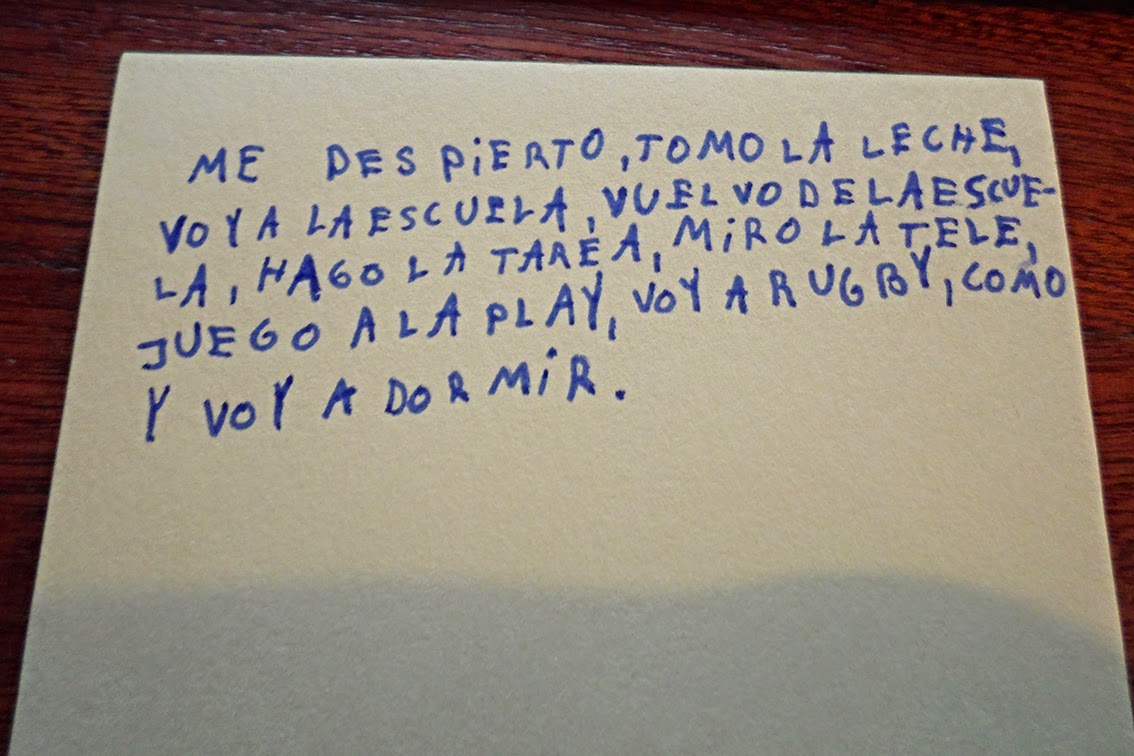 ME DESPiERTO, TOMO LA LECHE,
VOY A LA ESCUELA, VUELVO DE LA ESCUE-
LA, HAGO LA TAREA, MiRO LA TELE,
JUEGO A LA PLAY, VOY A RUGBY, COMO
Y VOY A DORMiR.